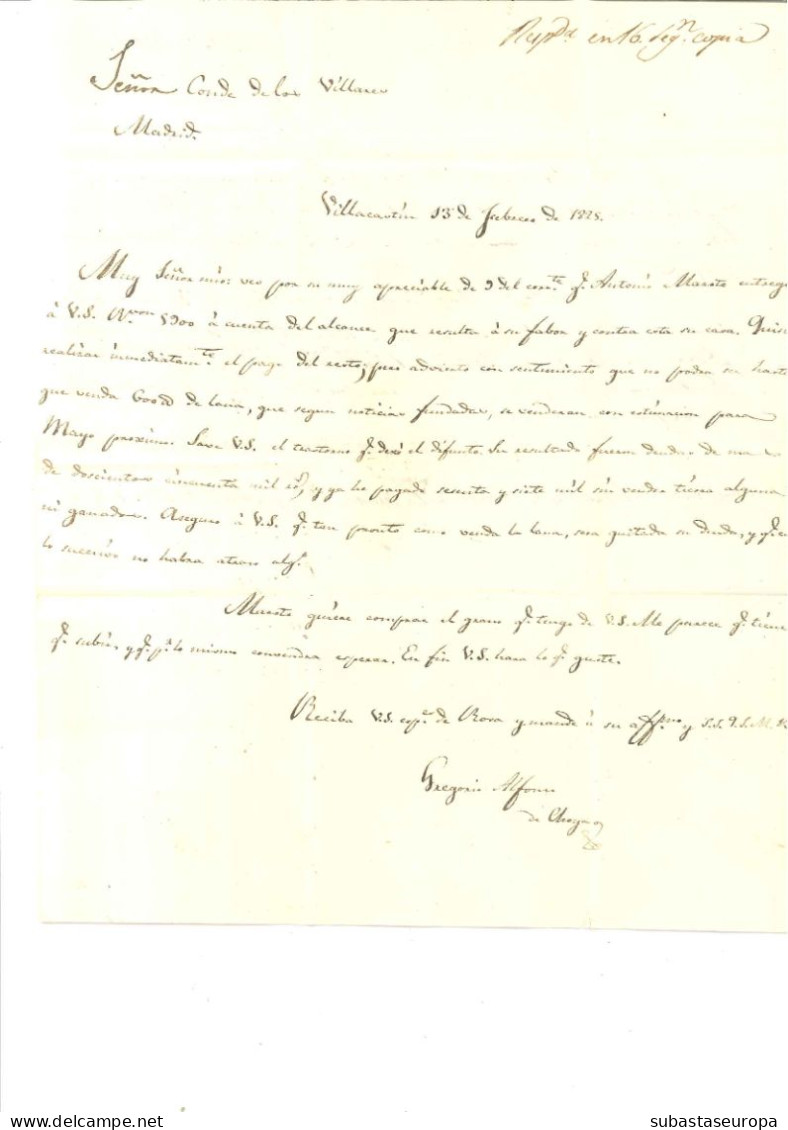 Resp.da en 16. seg.n copia
Señor Conde de los Villares
Madrid.
Villacastin 13 de Febrero de 1825.
Muy Señor mio: veo por su muy apreciable de 9 del corr.te q.e Antonio Maroto entreg
à V.S. R.s von 1900 à cuenta del alcance que resulta à su fabor y contra esta su casa. Quis
realizar inmediatam.te el pago del resto; pero advierto con sentimiento que no podra ser hasta
que venda 600 @ de lana, que segun noticias fundadas, se venderan con estimacion para
Mayo proximo. Save V.S. el trastorno q.e dexó el difunto. Su resultado fueron deudas de mas
de doscientos cincuenta mil r.s, y ya he pagado sesenta y siete mil sin vender tierra alguna
ni ganados. Aseguro à V.S. q.e tan pronto como venda la lana, sera quitada su deuda, y q.e en
lo sucesivo no habra atraso alg.o
Maroto quiere comprar el grano q.e tengo de V.S. Me parece q.e tiene
q.e subir, y q.e p.r lo mismo convendra esperar. En fin V.S. hara lo q.e guste.
Reciba V.S. esp.s de Rosa y mande à su aff.mo y S.S. Q.S.M.B.
Gregorio Alfonso
de
subastaseuropa